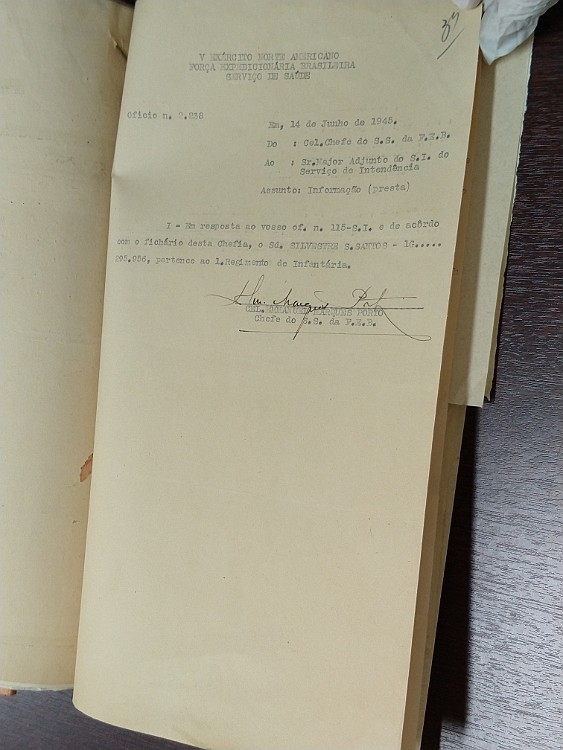 37
V EXÉRCITO NORTE AMERICANO
FORÇA EXPEDICIONÁRIA BRASILEIRA
SERVIÇO DE SAÚDE
Oficio n. 2.238
Em, 14 de Junho de 1945.
Do : Cel.Chefe do S.S. da F.E.B.
Ao : Sr.Major Adjunto do S.I. do
Serviço de Intendência
Assunto: Informação (presta)
I - Em resposta ao vosso of. n. 115-S.I. e de acôrdo
com o fichário desta Chefia, o Sd. SILVESTRE S.SANTOS - 1G.....
295.956, pertence ao 1.Regimento de Infantária.
CEL.EMMANUEL MARQUES PORTO
Chefe do S.S. da F.E.B.